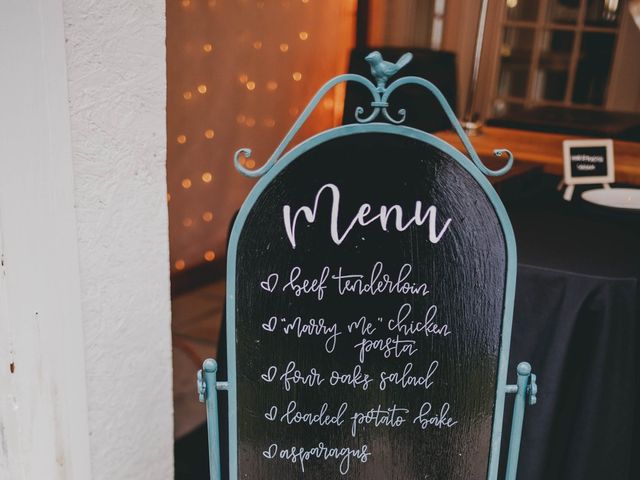 Menu
beef tenderloin
"marry me" chicken
pasta
four oaks salad
loaded potato bake
asparagus